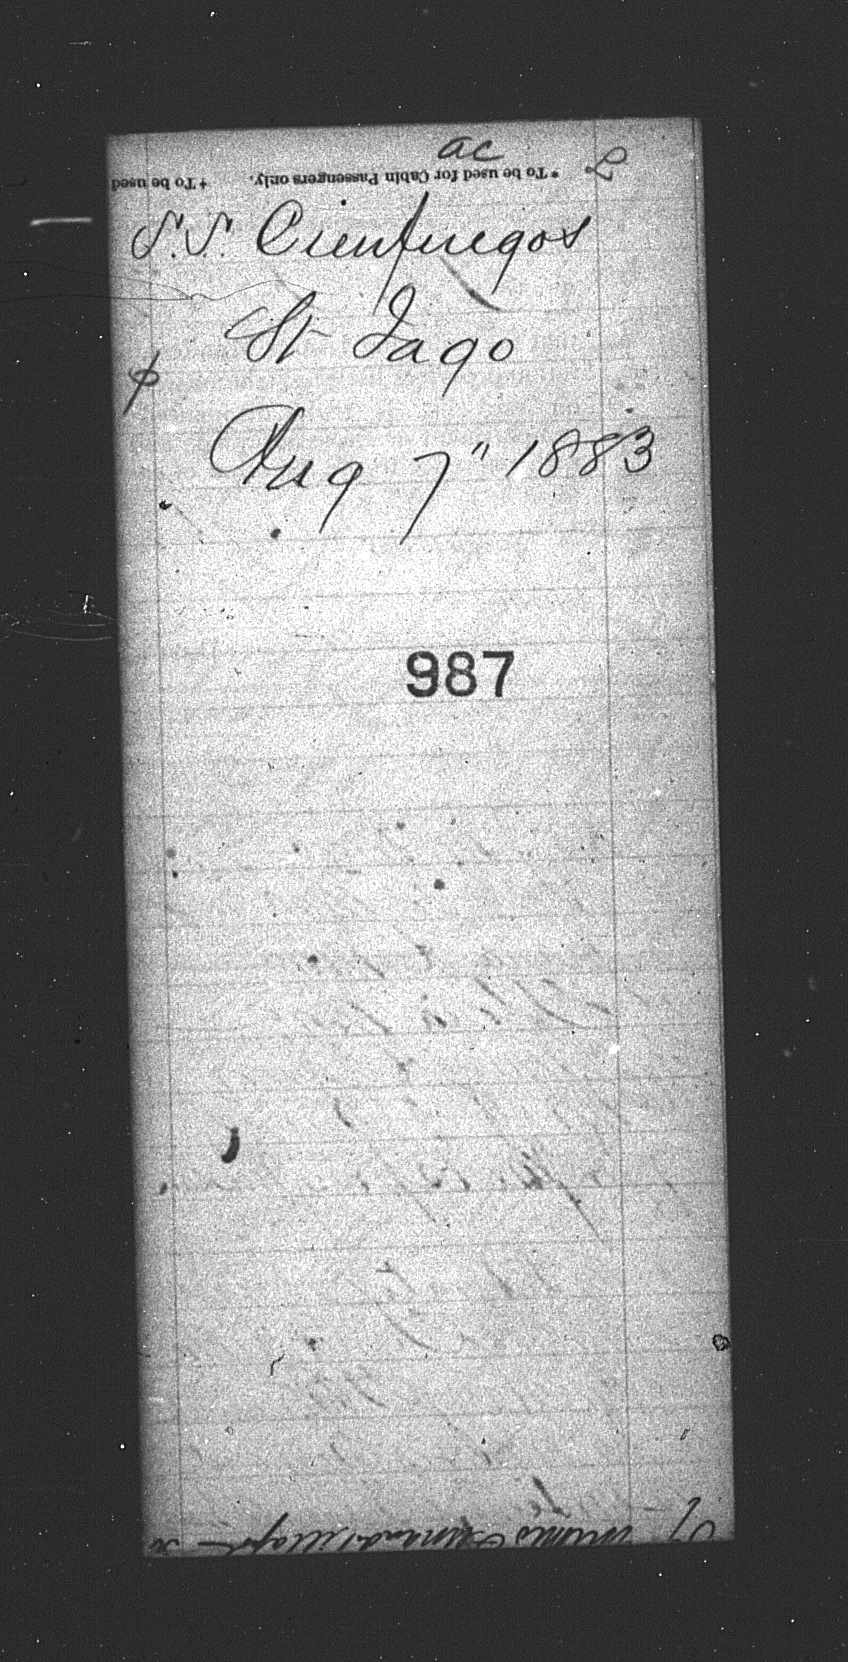 ac
* To be used for Cabin Passengers only.
† To be used
S.S. Cienfuegos
St Jago
Aug 7" 1883
987